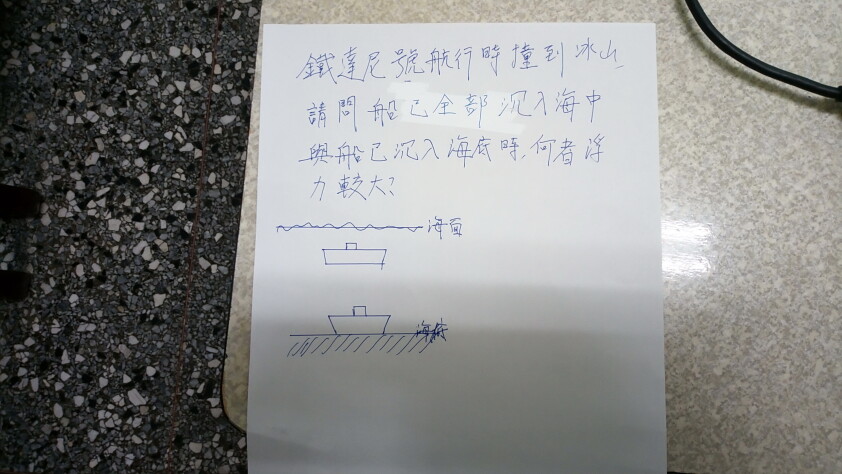 鐵達尼號航行時撞到冰山
請問船已全部沉入海中
與船已沉入海底時,何者浮
力較大?
海面
海底